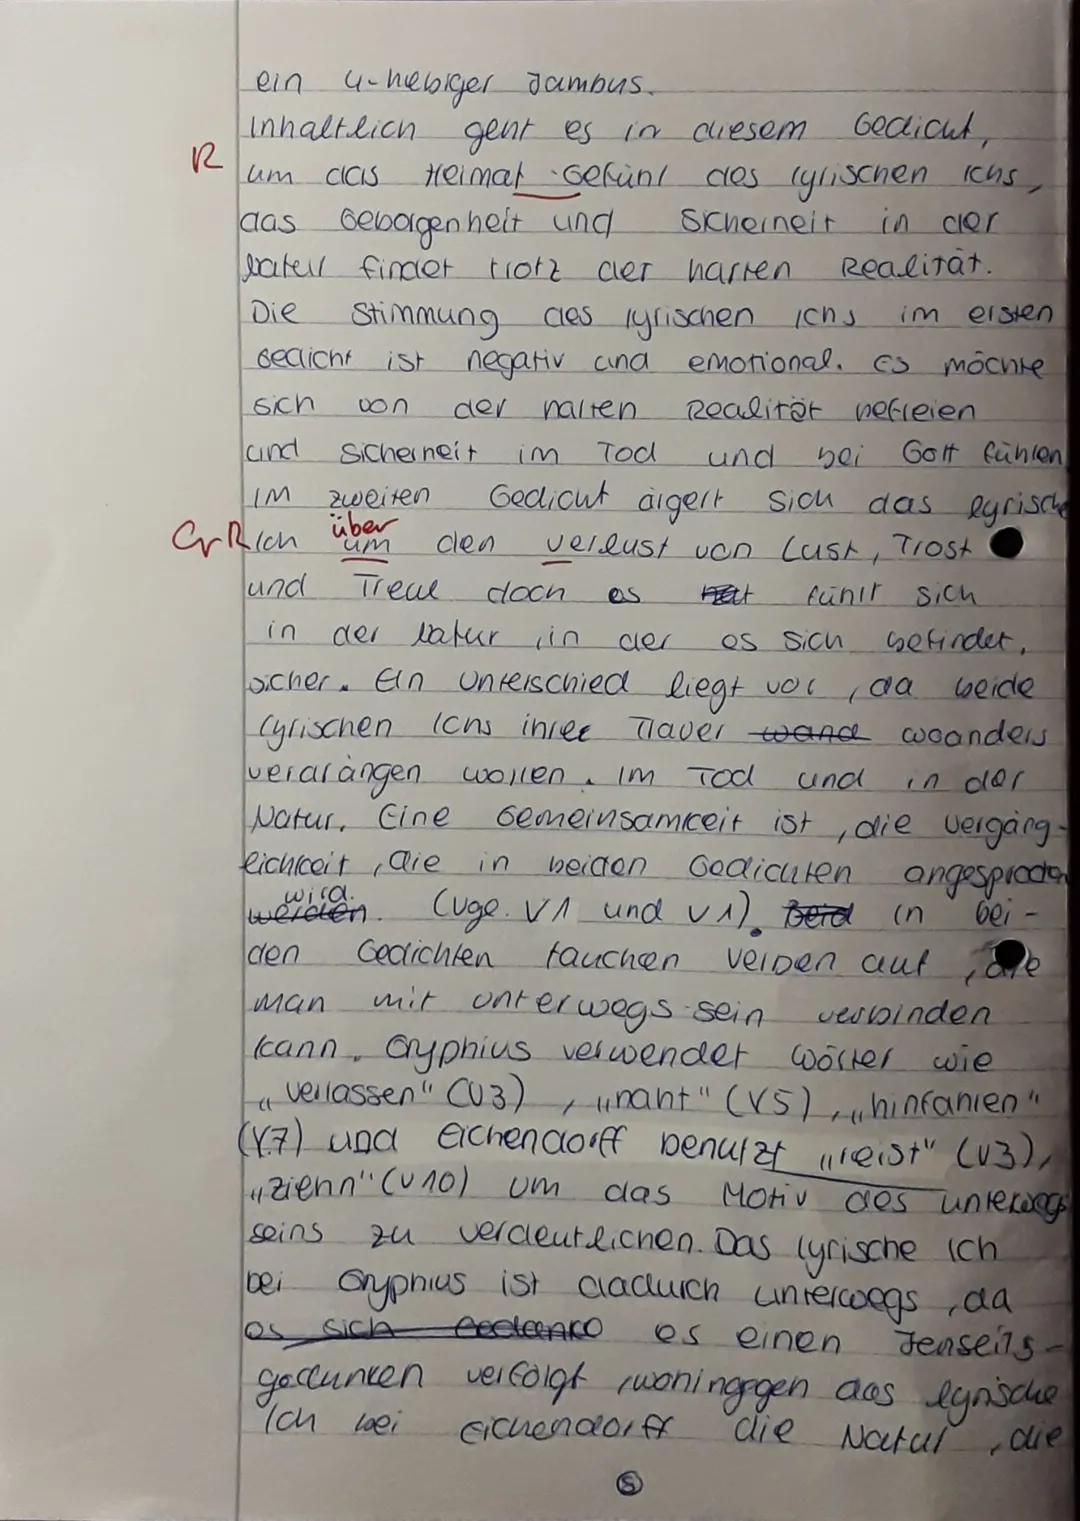 ein 4-hebiger Jambus.
Inhaltlich geht es in diesem Gedicht,
R um das Heimat-Gefühl des lyrischen Ichs,
das Geborgenheit und Sicherheit in der
Natur findet trotz der harten Realität.
Die Stimmung des lyrischen Ichs im ersten
Gedicht ist negativ und emotional. Es möchte
sich von der harten Realität befreien
und Sicherheit im Tod und bei Gott fühlen
Im zweiten Gedicht ärgert sich das lyrische
über
Gr R Ich um den Verlust von Lust, Trost
und Treue doch es hat fühlt sich
in der Natur, in der es sich befindet,
sicher. Ein Unterschied liegt vor, da beide
lyrischen Ichs ihre Trauer wand woanders
verdrängen wollen. Im Tod und in der
Natur. Eine Gemeinsamkeit ist, die Vergäng-
lichkeit, die in beiden Gedichten angesprochen
wird.
werden. (Vgl. V1 und V1). Beid In bei-
den Gedichten tauchen Verben auf, die
man mit unterwegs-sein verbinden
kann. Gryphius verwendet Wörter wie
„verlassen" (V3), „naht" (V5), „hinfahren"
(V.7) und Eichendorff benutzt „reist" (V3),
„ziehn" (V10) um das Motiv des unterwegs
seins zu verdeutlichen. Das lyrische Ich
bei Gryphius ist dadurch unterwegs, da
es sich es einen Jenseits-
gedanken verfolgt, wohingegen das lyrische
Ich bei Eichendorff die Natur, die
5